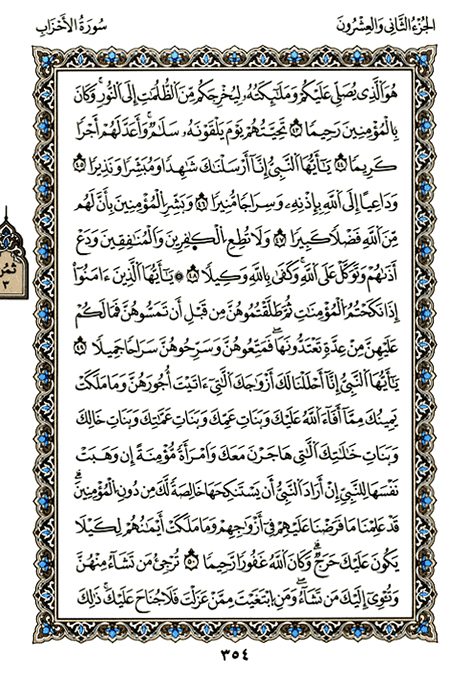 الجُزءُ الثَّانِى وَالعِشْرُونَ
سُورَةُ الأَحْزَابِ
هُوَ الَّذِى يُصَلِّى عَلَيْكُمْ وَمَلَٰٓئِكَتُهُۥ لِيُخْرِجَكُم مِّنَ الظُّلُمَٰتِ إِلَى النُّورِ ۚ وَكَانَ
بِالْمُؤْمِنِينَ رَحِيمًا ٤٣ تَحِيَّتُهُمْ يَوْمَ يَلْقَوْنَهُۥ سَلَٰمٌ ۚ وَأَعَدَّ لَهُمْ أَجْرًا
كَرِيمًا ٤٤ يَٰٓأَيُّهَا النَّبِىُّ إِنَّآ أَرْسَلْنَٰكَ شَٰهِدًا وَمُبَشِّرًا وَنَذِيرًا ٤٥
وَدَاعِيًا إِلَى اللَّهِ بِإِذْنِهِۦ وَسِرَاجًا مُّنِيرًا ٤٦ وَبَشِّرِ الْمُؤْمِنِينَ بِأَنَّ لَهُم
مِّنَ اللَّهِ فَضْلًا كَبِيرًا ٤٧ وَلَا تُطِعِ الْكَٰفِرِينَ وَالْمُنَٰفِقِينَ وَدَعْ
أَذَىٰهُمْ وَتَوَكَّلْ عَلَى اللَّهِ ۚ وَكَفَىٰ بِاللَّهِ وَكِيلًا ٤٨ يَٰٓأَيُّهَا الَّذِينَ ءَامَنُوٓا۟
إِذَا نَكَحْتُمُ الْمُؤْمِنَٰتِ ثُمَّ طَلَّقْتُمُوهُنَّ مِن قَبْلِ أَن تَمَسُّوهُنَّ فَمَا لَكُمْ
عَلَيْهِنَّ مِنْ عِدَّةٍ تَعْتَدُّونَهَا ۖ فَمَتِّعُوهُنَّ وَسَرِّحُوهُنَّ سَرَاحًا جَمِيلًا ٤٩
يَٰٓأَيُّهَا النَّبِىُّ إِنَّآ أَحْلَلْنَا لَكَ أَزْوَٰجَكَ الَّٰتِىٓ ءَاتَيْتَ أُجُورَهُنَّ وَمَا مَلَكَتْ
يَمِينُكَ مِمَّآ أَفَآءَ اللَّهُ عَلَيْكَ وَبَنَاتِ عَمِّكَ وَبَنَاتِ عَمَّٰتِكَ وَبَنَاتِ خَالِكَ
وَبَنَاتِ خَٰلَٰتِكَ الَّٰتِى هَاجَرْنَ مَعَكَ وَامْرَأَةً مُّؤْمِنَةً إِن وَهَبَتْ
نَفْسَهَا لِلنَّبِىِّ إِنْ أَرَادَ النَّبِىُّ أَن يَسْتَنكِحَهَا خَالِصَةً لَّكَ مِن دُونِ الْمُؤْمِنِينَ ۗ
قَدْ عَلِمْنَا مَا فَرَضْنَا عَلَيْهِمْ فِىٓ أَزْوَٰجِهِمْ وَمَا مَلَكَتْ أَيْمَٰنُهُمْ لِكَيْلَا
يَكُونَ عَلَيْكَ حَرَجٌ ۗ وَكَانَ اللَّهُ غَفُورًا رَّحِيمًا ٥٠ تُرْجِئُ مَن تَشَآءُ مِنْهُنَّ
وَتُـْٔوِىٓ إِلَيْكَ مَن تَشَآءُ ۖ وَمَنِ ابْتَغَيْتَ مِمَّنْ عَزَلْتَ فَلَا جُنَاحَ عَلَيْكَ ۚ ذَٰلِكَ
ثُمُن
٣
٣٥٤